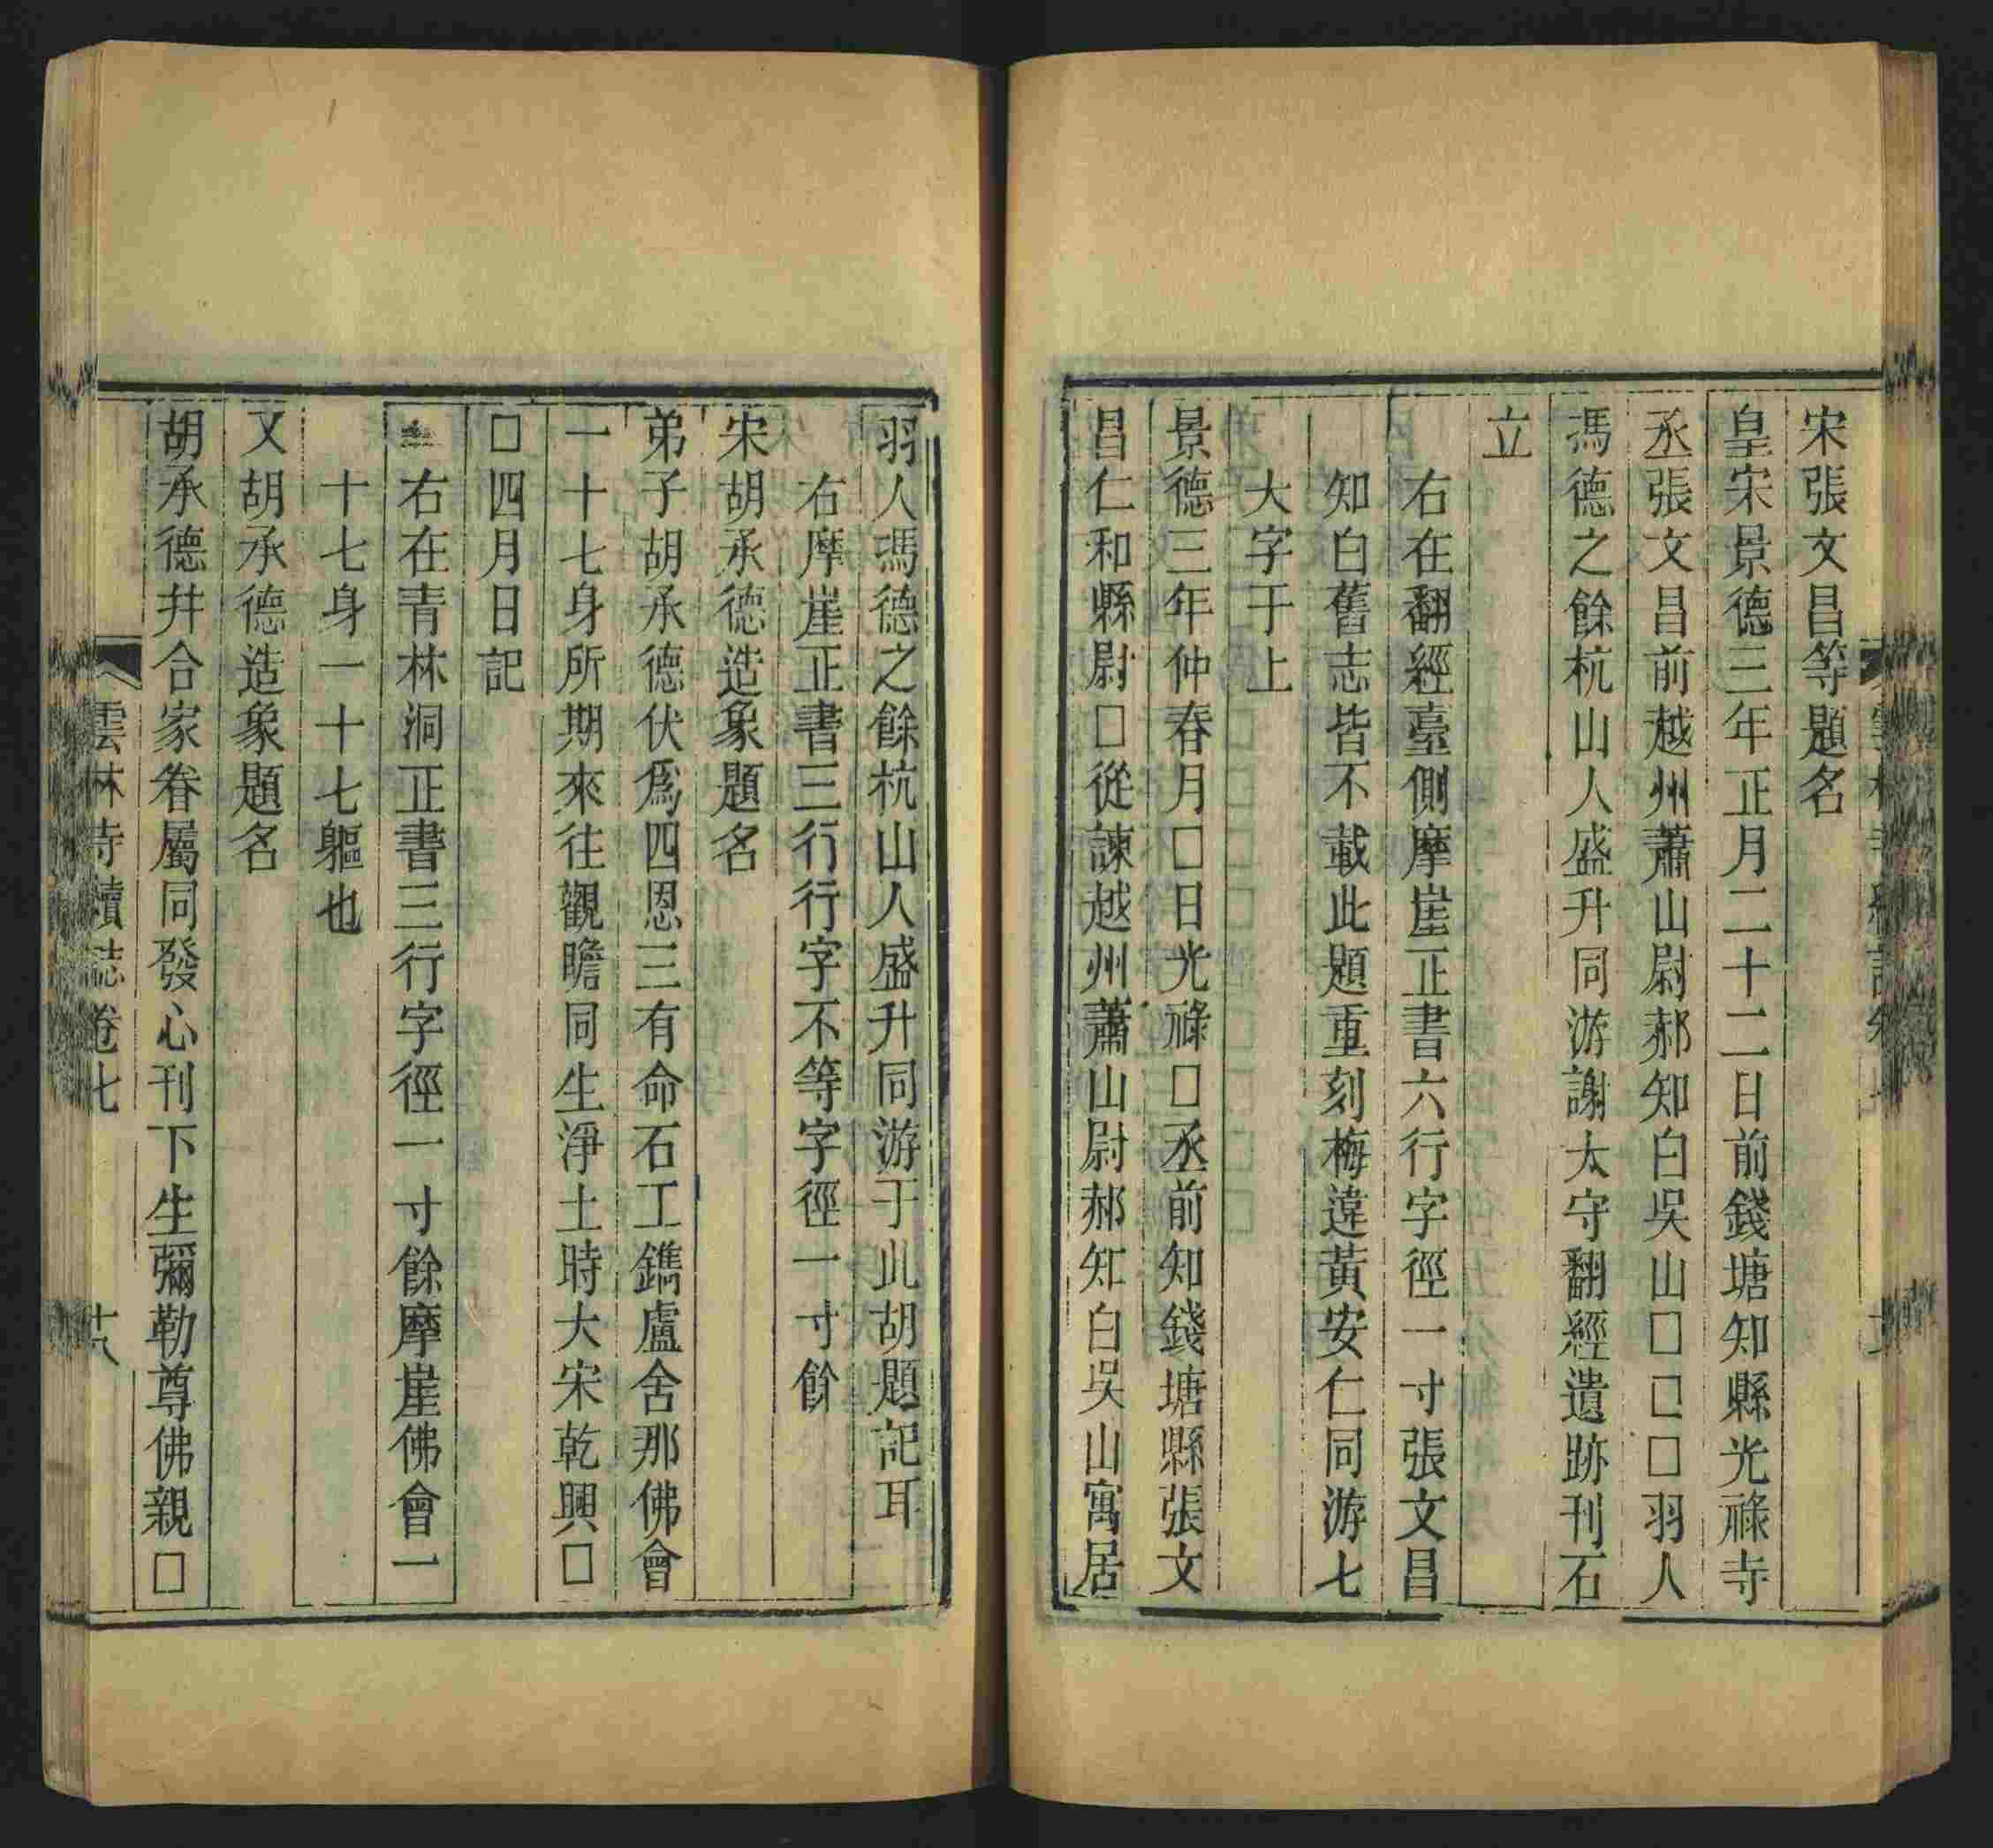 宋張文昌等題名
皇宋景德三年正月二十二日前錢塘知縣光祿寺
丞張文昌前越州蕭山尉郝知白吳山□□□羽人
馮德之餘杭山人盛升同游謝太守翻經遺跡刊石
立
右在翻經臺側摩崖正書六行字徑一寸張文昌
知白舊志皆不載此題重刻梅違黃安仁同游七
大字于上
景德三年仲春月□日光祿□丞前知錢塘縣張文
昌仁和縣尉□從諫越州蕭山尉郝知白吳山寓居
羽人馮德之餘杭山人盛升同游于此胡題記耳
右摩崖正書三行行字不等字徑一寸餘
宋胡承德造象題名
弟子胡承德伏爲四恩三有命石工鐫盧舍那佛會
一十七身所期來往觀瞻同生淨土時大宋乾興□
□四月日記
右在青林洞正書三行字徑一寸餘摩崖佛會一
十七身一十七軀也
又胡承德造象題名
胡承德并合家眷屬同發心刊下生彌勒尊佛親□
雲林寺續誌卷七
十八